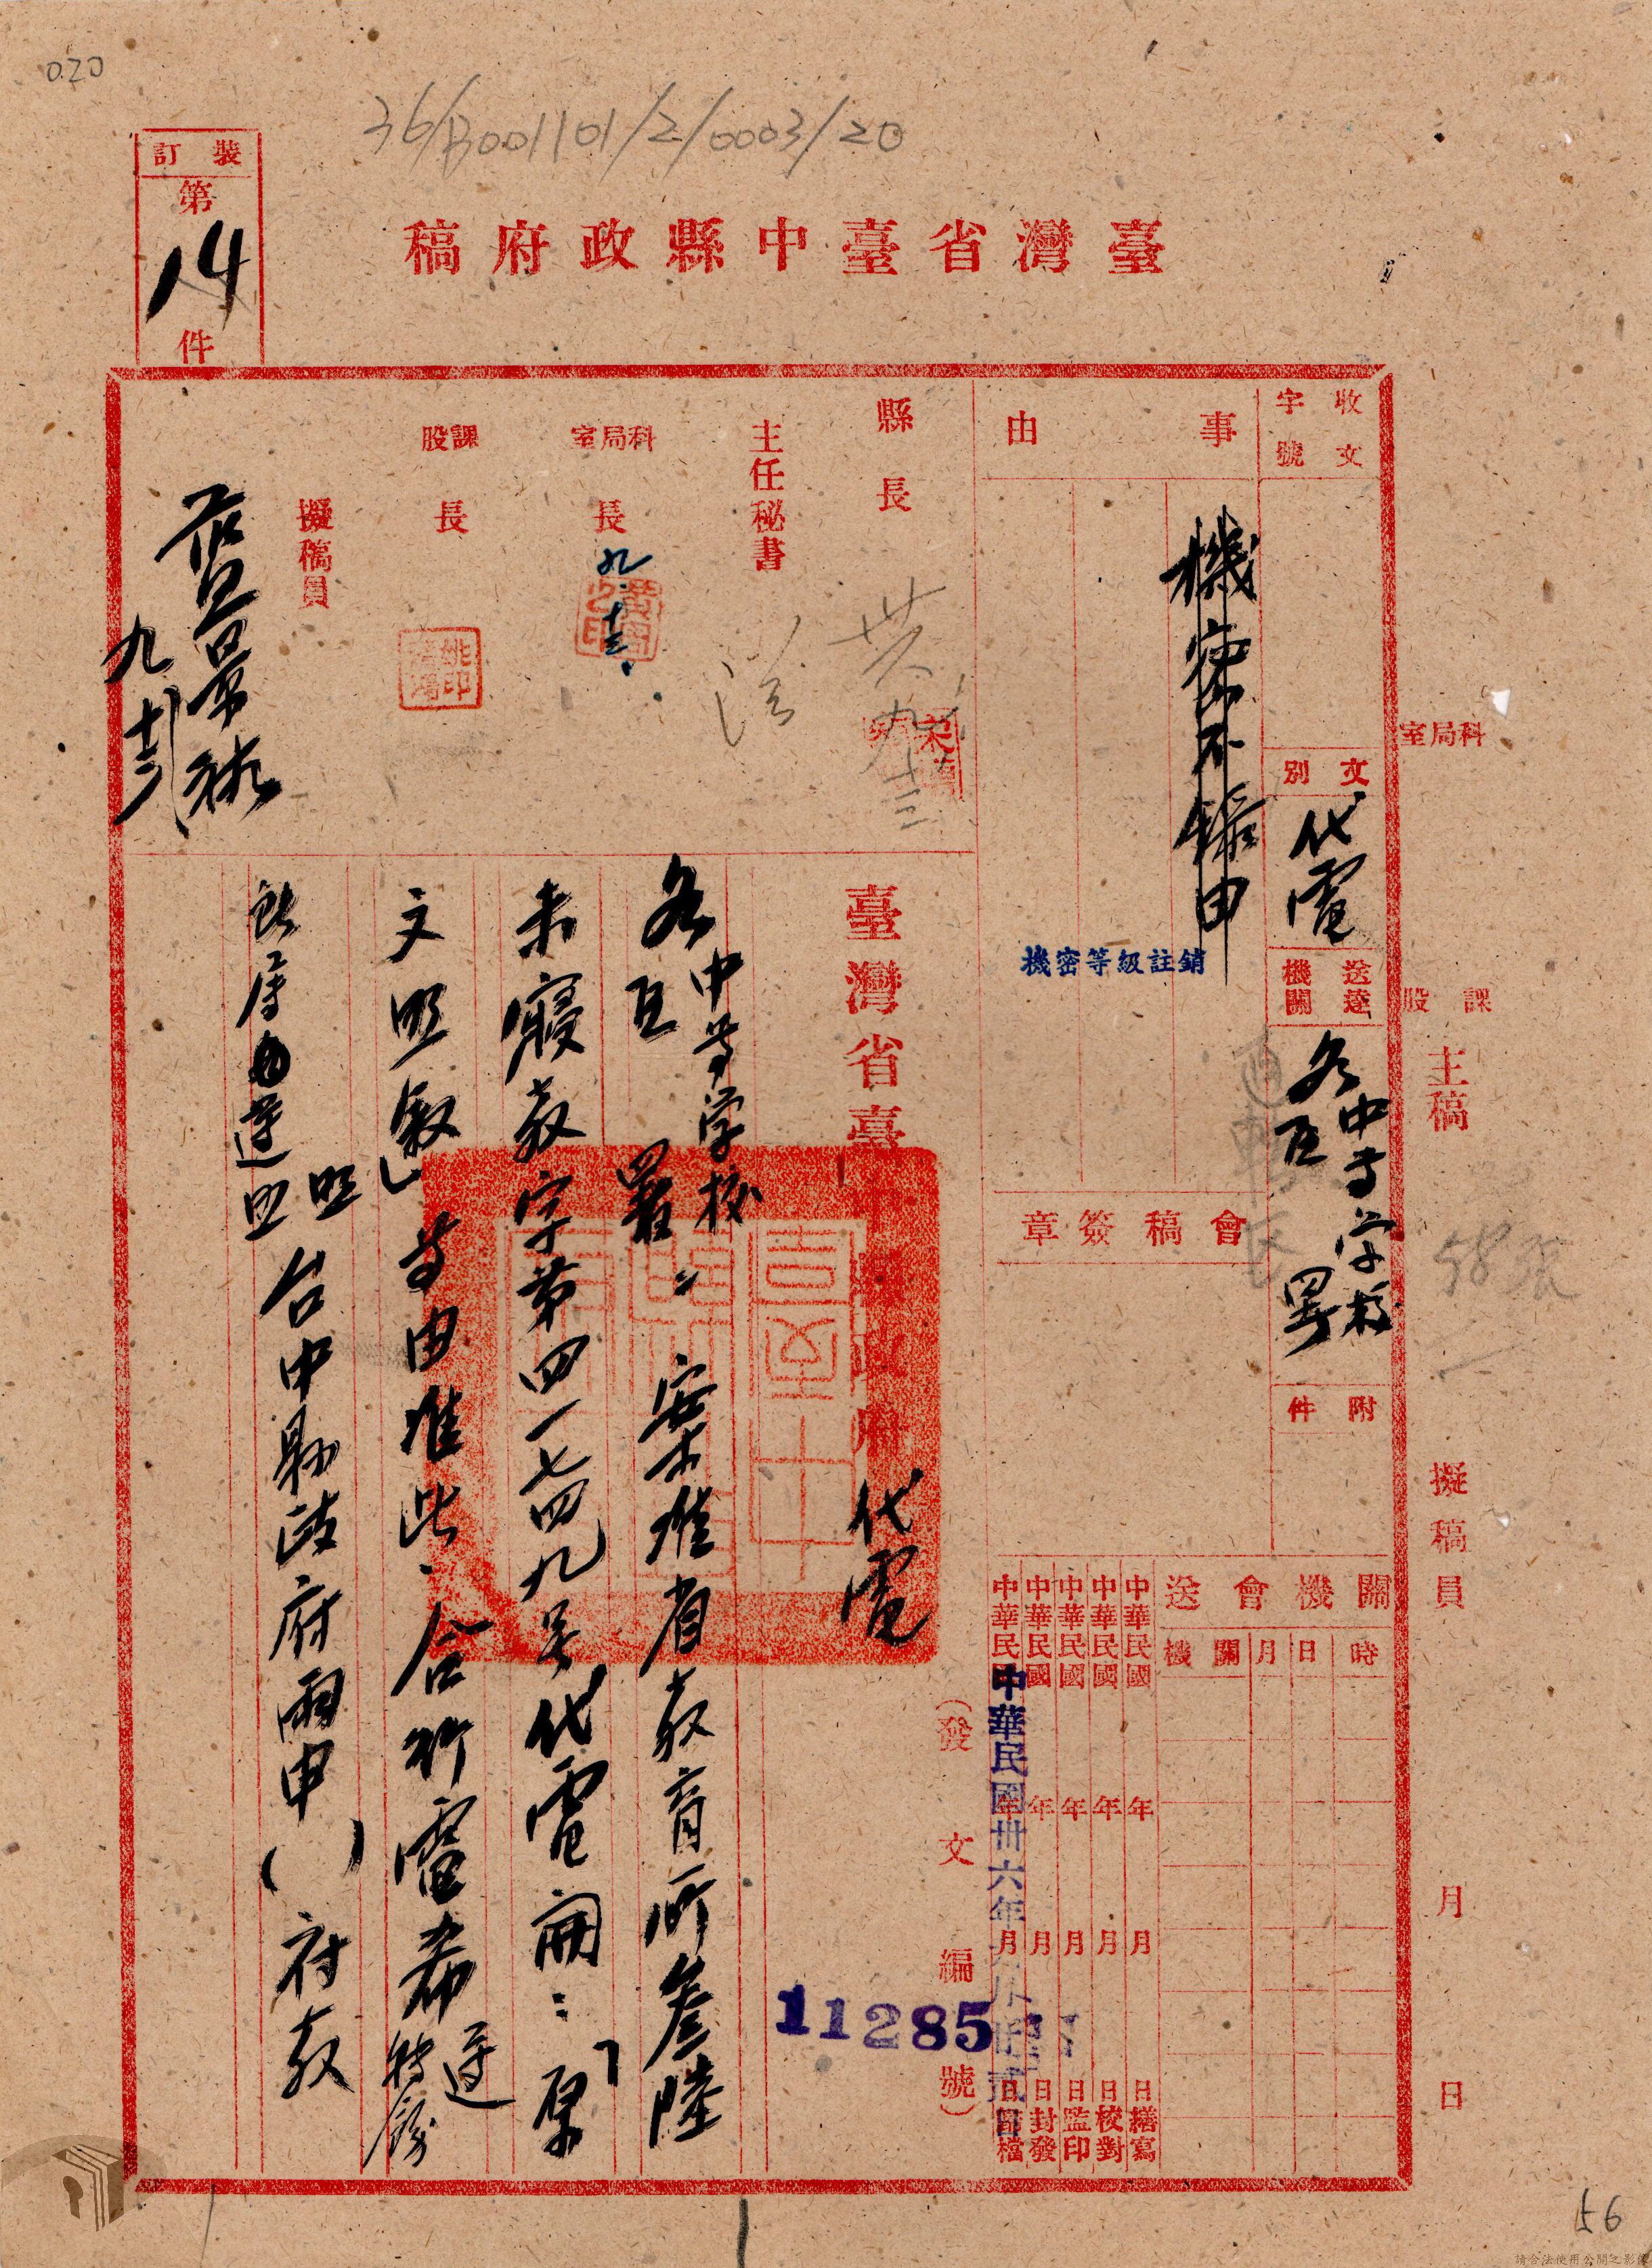 020
36/B001101/2/0003/20
裝訂
第
14
件
臺灣省臺中縣政府稿
收文
字號
文別
代電
送達
機關
各中等學校
各區署
附件
事由
機密不錄由
機密等級註銷
會稿簽章
送會機關
機關
月
日
時
中華民國 年 月 日繕寫
中華民國 年 月 日校對
中華民國 年 月 日監印
中華民國 年 月 日封發
中華民國 年 月 日歸檔
中華民國卅六年
縣長
九 十三
主任秘書
科局室
長
九.十三.
課股
長
擬稿員
九 十二
科局室
課股
主稿
擬稿員
月
日
(發文編號)
11285
臺灣省臺中縣政府 代電
各中等學校
各區署
案准省教育所叁陸
未寢教字第四一七四九號代電開:「原
文照敘」等由准此.合行電希遵
照
台中縣政府 申( )府教
56
請合法使用公開之影像